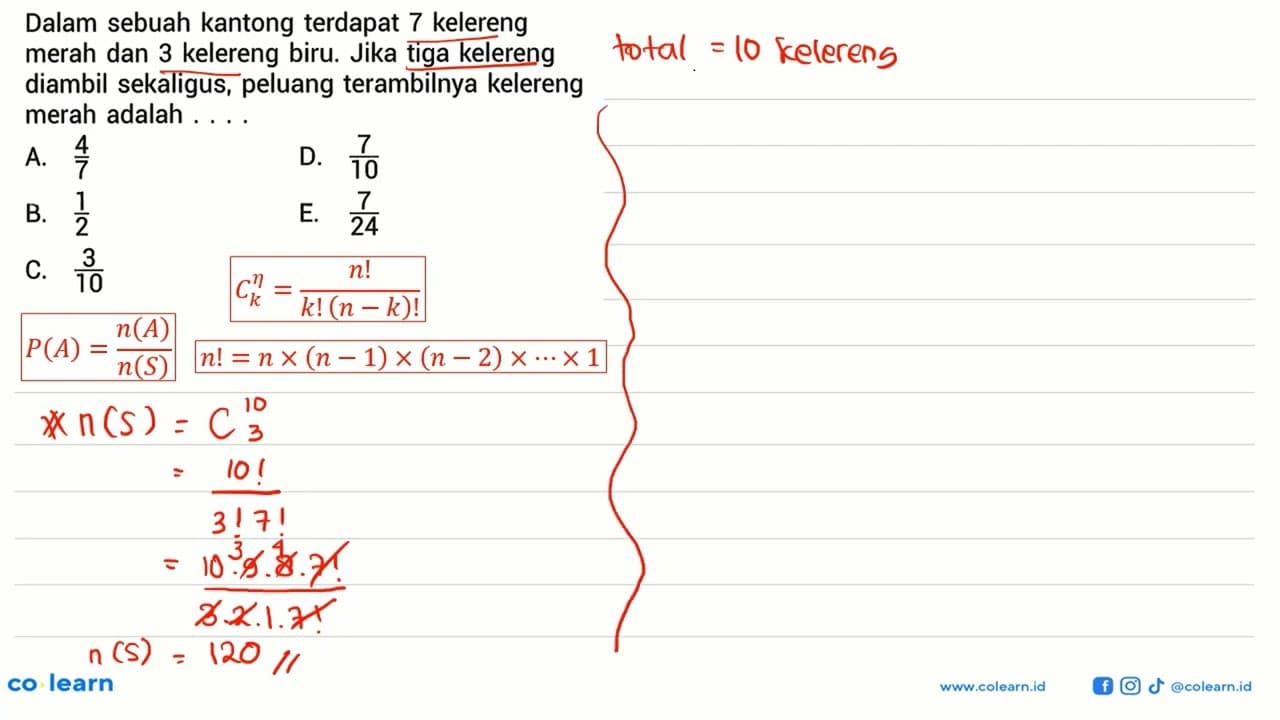 Dalam sebuah kantong terdapat 7 kelereng
merah dan 3 kelereng biru. Jika tiga kelereng
diambil sekaligus, peluang terambilnya kelereng
merah adalah . . . .
A. 4/7
D. 7/10
B. 1/2
E. 7/24
C. 3/10
C_k^η = n! / k! (n − k)!
P(A) = n(A) / n(S)
n! = n × (n − 1) × (n − 2) × ⋯ × 1
* n(S) = C_3^10
= 10! / 3! 7!
= 10 . 9 3 . 8 4 . 7! / 3 . 2 . 1 . 7!
n(S) = 120 //
total = 10 kelereng
co learn
www.colearn.id
@colearn.id